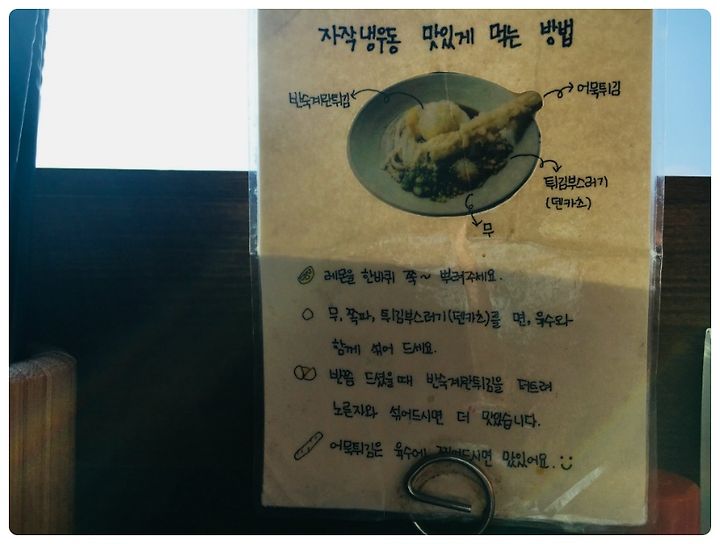 자작냉우동 맛있게 먹는 방법
반숙계란튀김
어묵튀김
튀김부스러기
(덴카츠)
무
레몬을 한바퀴 쭉~ 뿌려주세요.
무, 쪽파, 튀김부스러기(덴카츠)를 면, 육수와
함께 섞어 드세요.
반쯤 드셨을때 반숙계란튀김을 터트려
노른자와 섞어드시면 더 맛있습니다.
어묵튀김은 육수에 찍어드시면 맛있어요.